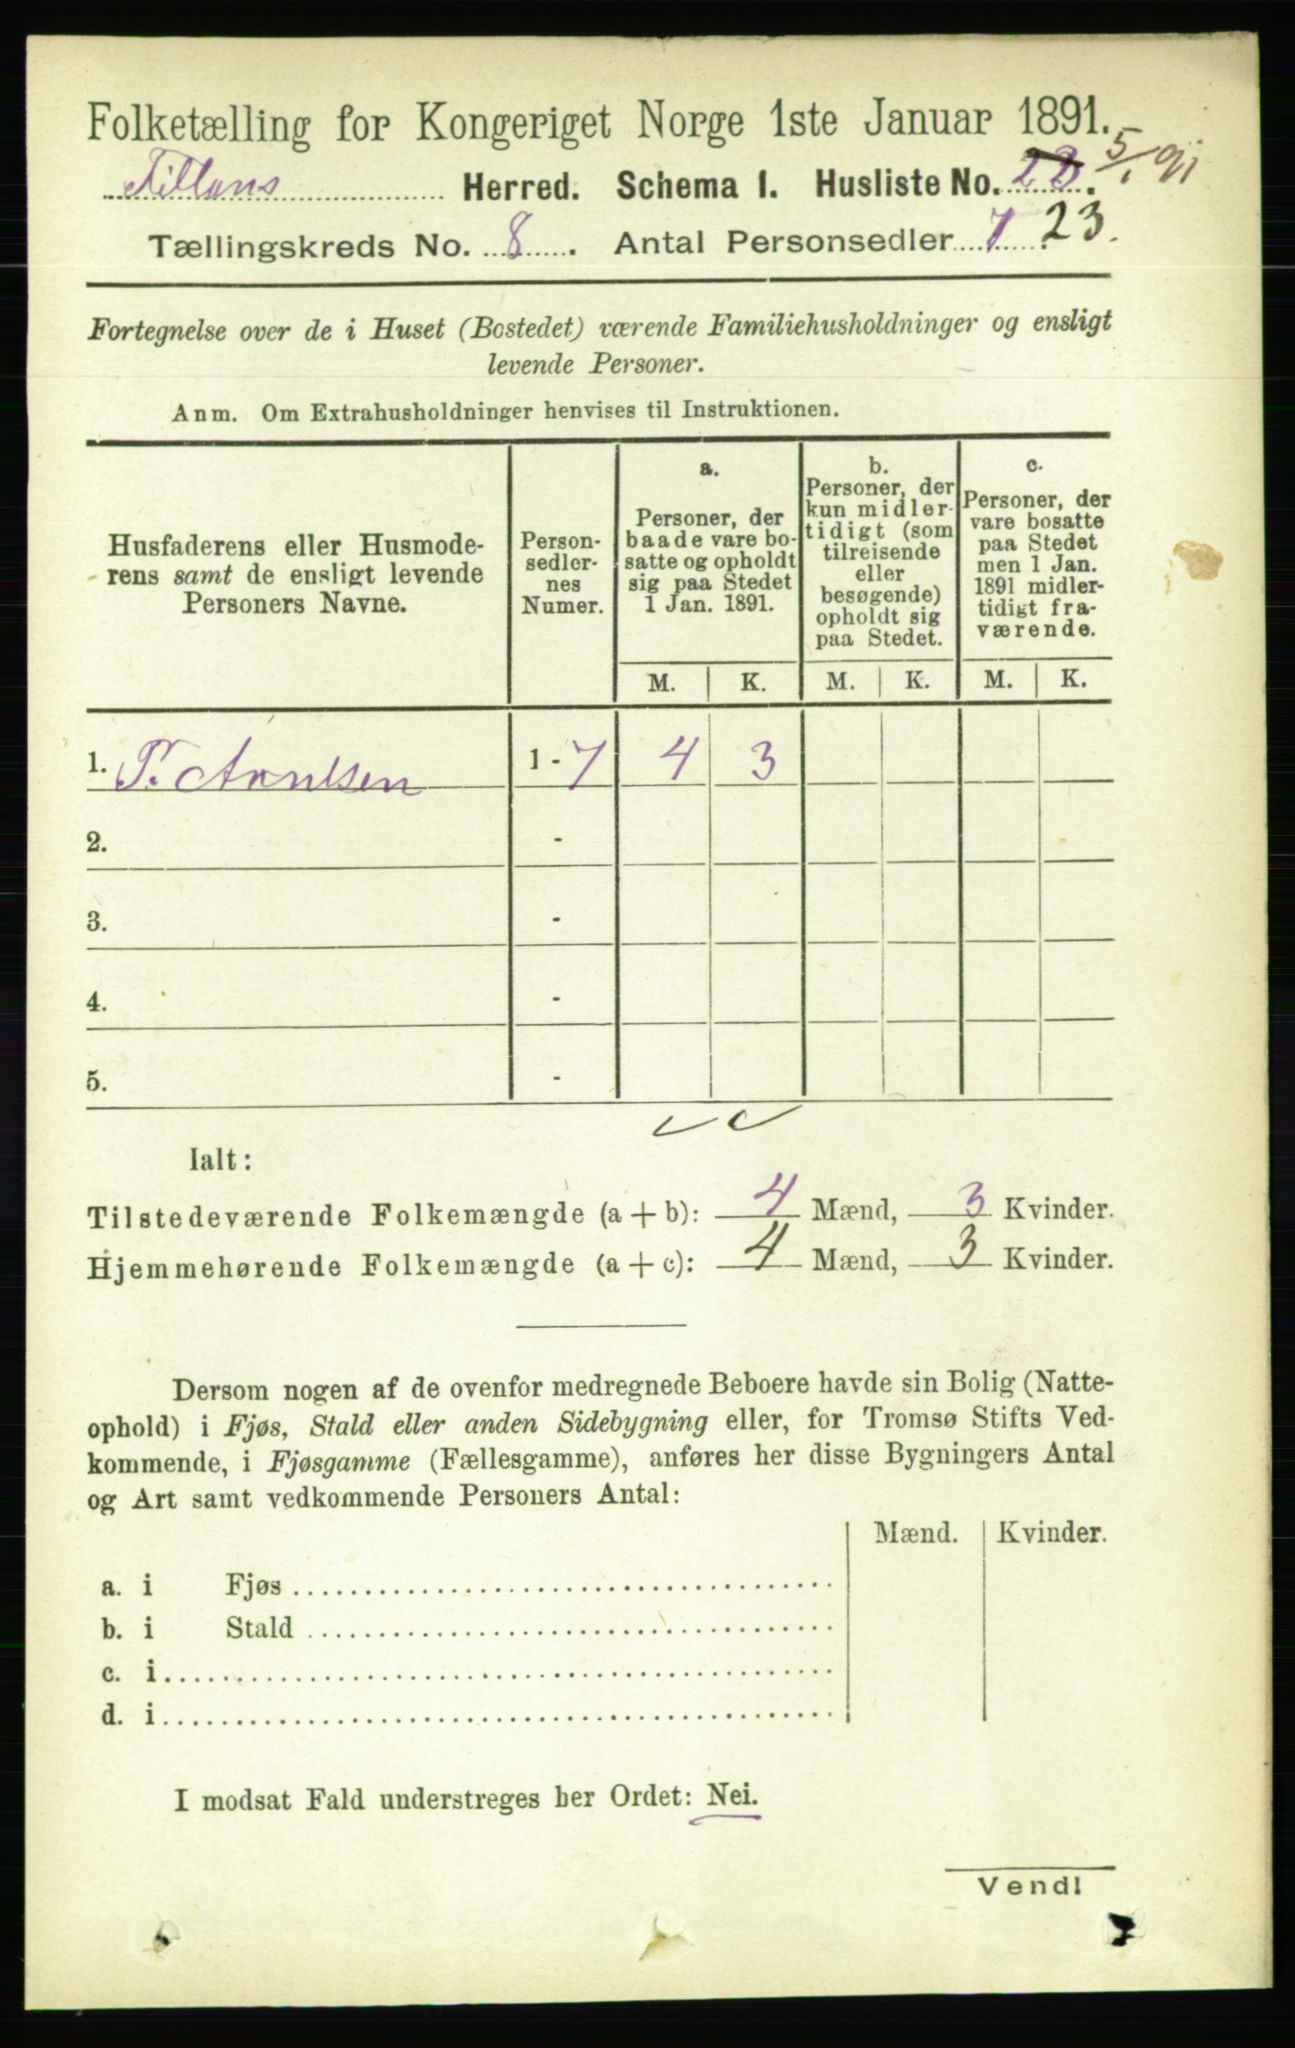 Folketælling for Kongeriget Norge 1ste Januar 1891.
Fillans Herred. Schema 1. Husliste No. 28. 5/1 91
Tællingskreds No. 8. Antal Personsedler 7. 23.
Fortegnelse over de i Huset (Bostedet) værende Familiehusholdninger og ensligt
levende Personer.
Anm. Om Extrahusholdninger henvises til Instruktionen.
Husfaderens eller Husmode-
rens samt de ensligt levende
Personers Navne.
Person-
sedler-
nes
Numer.
a.
Personer, der
baade vare bo-
satte og opholdt
sig paa Stedet
1 Jan. 1891.
b.
Personer, der
kun midler-
tidigt (som
tilreisende
eller
besøgende)
opholdt sig
paa Stedet.
c.
Personer, der
vare bosatte
paa Stedet
men 1 Jan.
1891 midler-
tidigt fra-
værende.
M. K. M. K. M. K.
1. P. Arntsen 1-7 4 3
2. -
3. -
4. -
5. -
Ialt:
Tilstedeværende Folkemængde (a + b): 4 Mænd, 3 Kvinder.
Hjemmehørende Folkemængde (a + c): 4 Mænd, 3 Kvinder.
Dersom nogen af de ovenfor medregnede Beboere havde sin Bolig (Natte-
ophold) i Fjøs, Stald eller anden Sidebygning eller, for Tromsø Stifts Ved-
kommende, i Fjøsgamme (Fællesgamme), anføres her disse Bygningers Antal
og Art samt vedkommende Personers Antal:
Mænd. Kvinder.
a. i Fjøs
b. i Stald
c. i
d. i
I modsat Fald understreges her Ordet: Nei.
Vend!